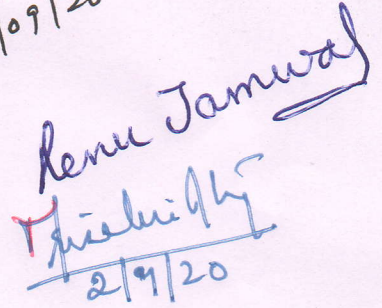 /09/20
Renu Jamwal
2/9/20